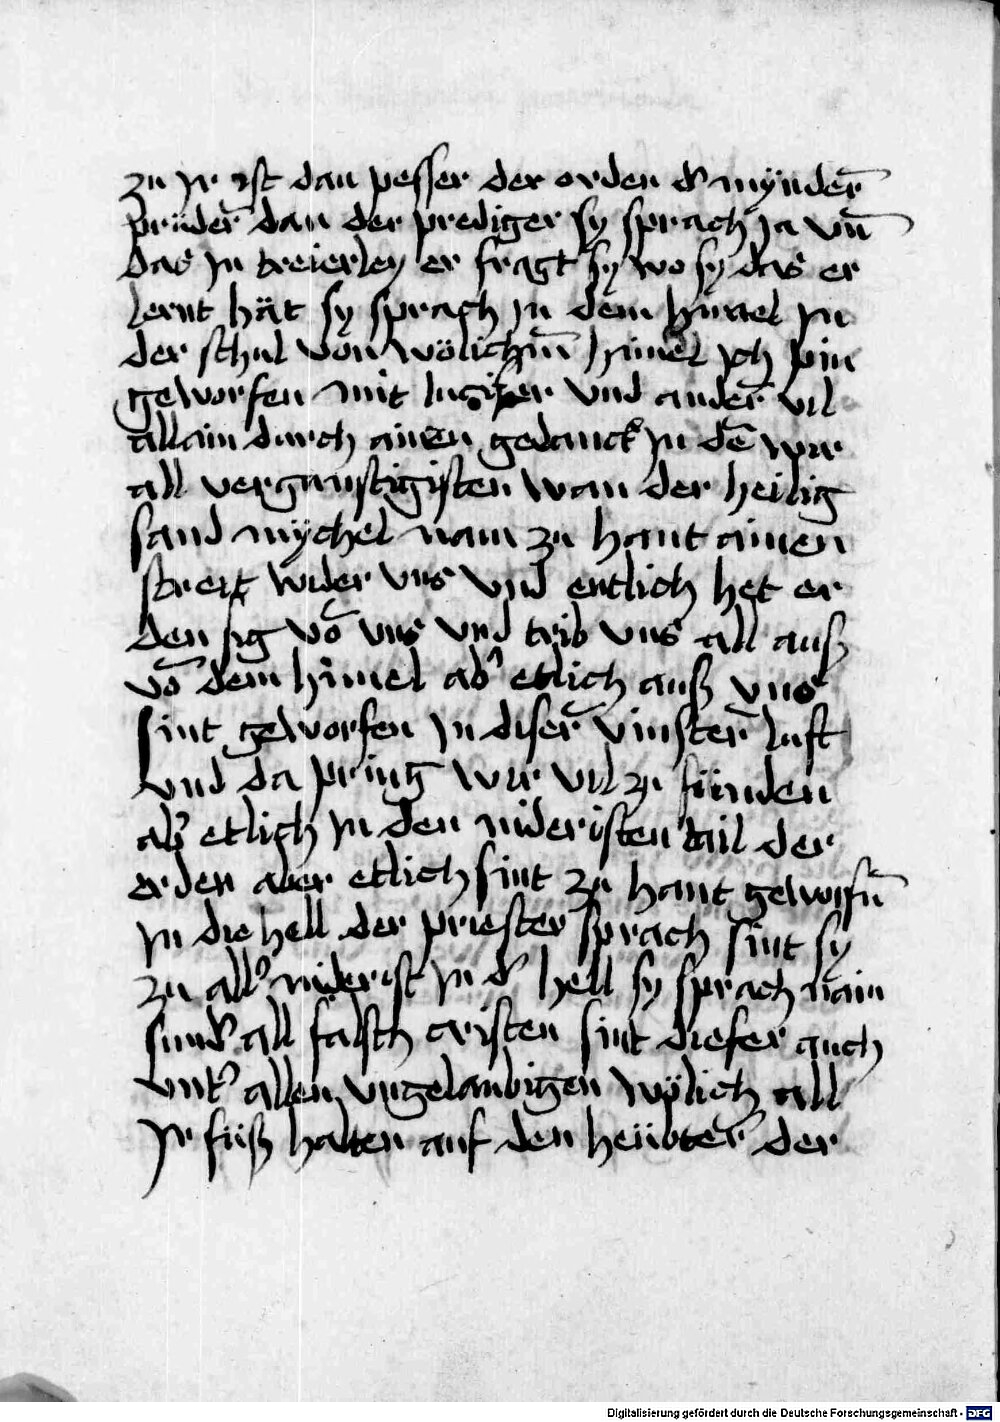 zu jr ist dan pesser der orden d' mÿnder̄
prüder̄ dan der prediger sy sprach ja vn̄
das jn treierley er fragt sy wo sy das er
lernt hät sy sprach jn dem himel jn
der schul von wölichm̄ himel jch pin
geworfen mit lucifer vnd ander̄ vil
allain durch ainen gedanck jn dē wir
all vergunstigisten wan der heilig
sand mÿchel nam zu hant ainen
streit wider vns vnd entlich het er
den sig vō vns vnd trib vns all auß
vō dem himel ab' etlich auß vns
sint geworfen jn diser̄ vinster̄ luft
vnd da pring wir vil zu sünden
ab' etlich jn den nideristen tail der
erden aber etlich sint zu hant geworfn̄
jn die hell der priester sprach sint sy
zu all' niderist jn d' hell sy sprach nain
sund' all falsch cristen sint diefer auch
vnt' allen vngelaubigen wölich all
jr füß halten auf den heübter̄ der
Digitalisierung gefördert durch die Deutsche Forschungsgemeinschaft - DFG